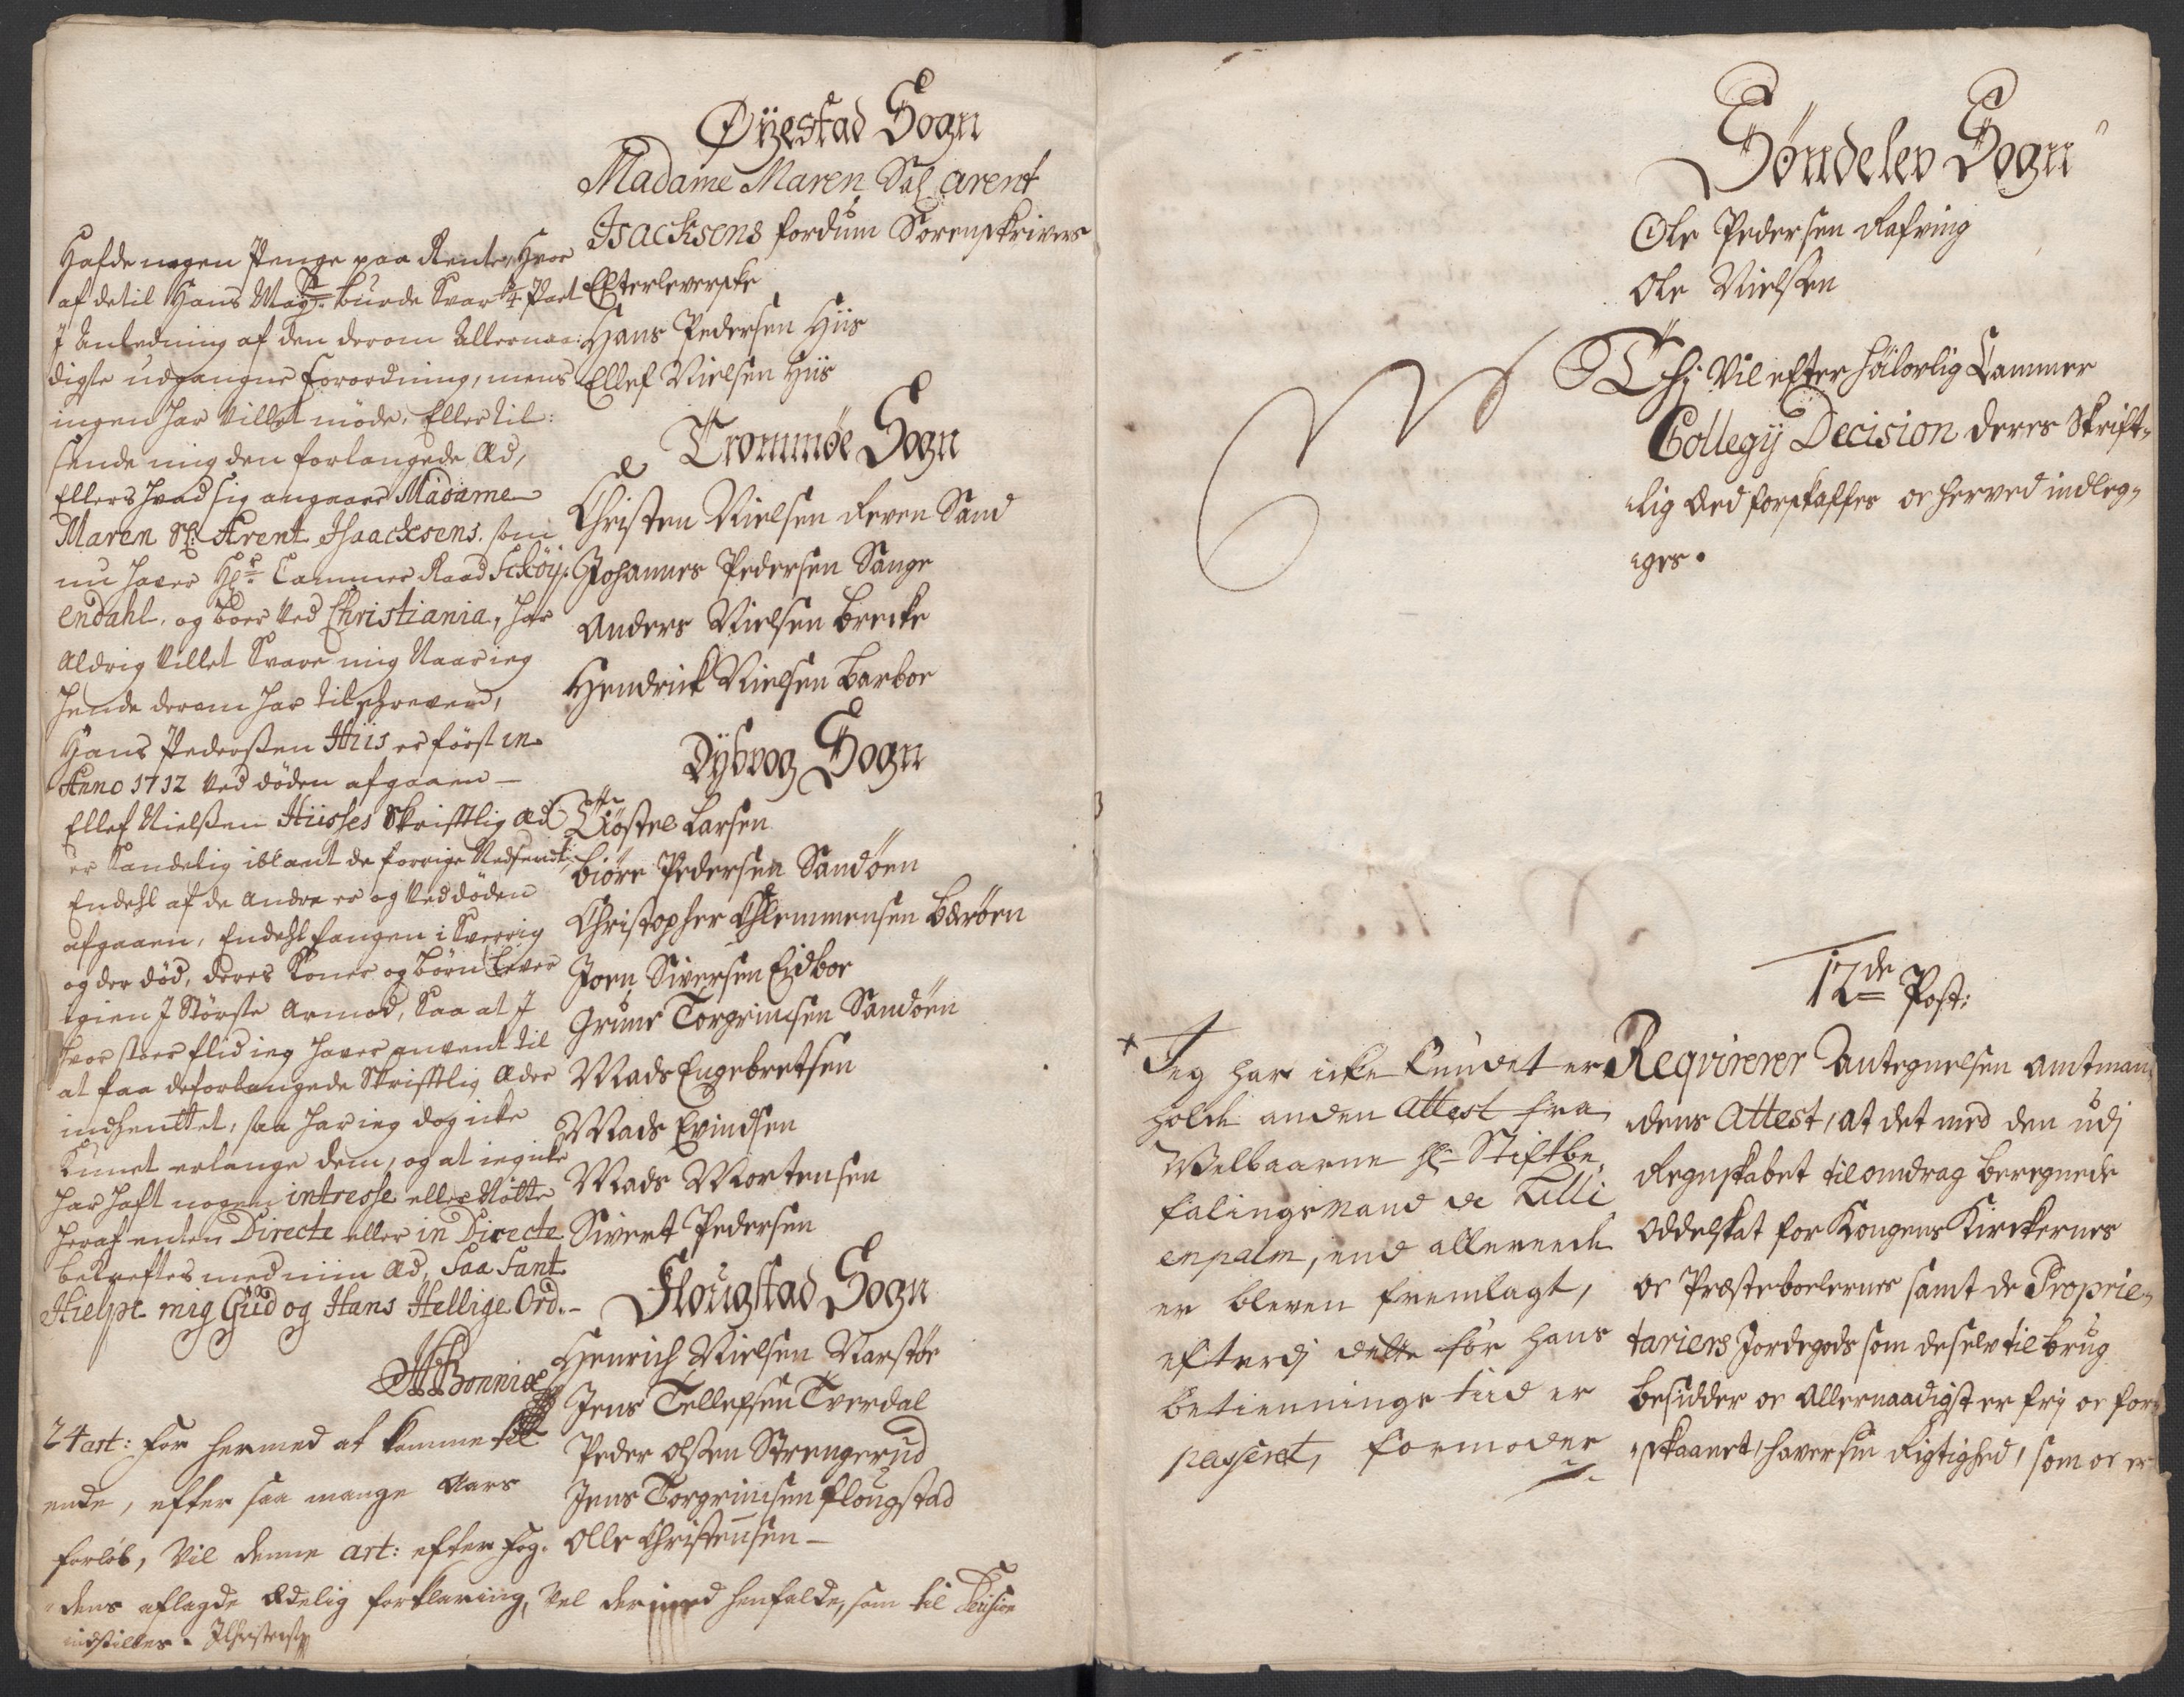 Øÿestad Sogn
Madame Maren Sal arent
Isacksens fordum Sorenskrivers
Efterleverske
Hans Pedersen Hiis
Ellef Nielsen Hiis
Trommøe Sogn
Christen Nielsen Reven Sand
Johannes Pedersen Sange
Anders Nielsen Brecke
Hendrick Nielsen Barboe
Dybvog Sogn
Tøstel Larsen
Biøre Pedersen Sandøen
Christopher Chlemmensen Barøen
Joen Siversen Eidboe
Grune Torgrimsen Sandøen
Mads Engebretsen
Mads Evindsen
Mads Mortensen
Sivert Pedersen
Flougstad Sogn
Henrich Nielsen Narstøe
Jens Tellefsen Tverdal
Peder Olsen Strengerud
Jens Torgrimsen Flougstad
Olle Christensen
Hafde nogen Penge paa Rente, hvor
af de til Hans Mayt: burde Svar 1/4 Part
J Anledning af den derom Allernaa:
digste udgangne forordning, mens
ingen har villet møde, Eller til:
sende mig den forlangede Æd,
Ellers hvad sig angaaer Madame
Maren Sl: Arent Isaacksens. som
nu haver Hr: Cammer Raad Schöÿ:
endahl, og boer ved Christiania, har
aldrig villet Svare mig Naar ieg
hende derom har tilskrevend,
Hans Pedersen Hiis er først in
Anno 1712 ved døden afgaaen –
Ellef Nielsen Hiisses Skrifftlig Æd
er Sandelig iblant de forrige Nedsendt
Endehl af de andre er og ved døden
afgaaen, Endehl fangen i Sverrig
og der død, deres Koner og børn lever
igien J Største Armod, Saa at J
hvor stoer flid ieg haver anvent til
at faa de forlangede Skrifftlig Æder
indhenttet, saa har ieg dog icke
Kunet erlange dem, og at ieg icke
har haft nogen intresse eller Nötte
heraf enten Directe eller in Directe
bekreftes med min Æd, Saa Sant
Hielpe mig Gud og Hans Hellige Ord. –
24 art: For hermed at komme til
ende, efter saa mange Aars
forløb, Vil denne art: efter Fog:
dens aflagde Ædelig forklaring, vel dermed henfalde, som til Decision
indstilles.
Søndelev Sogn
Ole Pedersen Rafning
Ole Nielsen
Thi Vil efter høilovlig Cammer
Collegij Decision deres Skrift-
lig Æed forskaffes oc herved indleg-
ges.
12de Post:
Reqvirerer Antegnelsen Amtman-
dens Attest, at det med den udj
Regnskabet til omdrag beregnede
Oddelskat for Kongens Kirckernes
oc Præsteboelernes samt de Proprie-
tariers Jordegods som de selv til brug
besidder oc Allernaadigst er fri oc for-
skaanet, haver sin Rigtighed, som oc er
× Jeg har icke Kundet er
holde anden Attest fra
Welbaarne Hr Stiftbe
falingsmand de Tilli
enpalm, end allereede
er bleven fremlagt,
efterdj dette før hans
betiennings tiid er
passeret, formoder